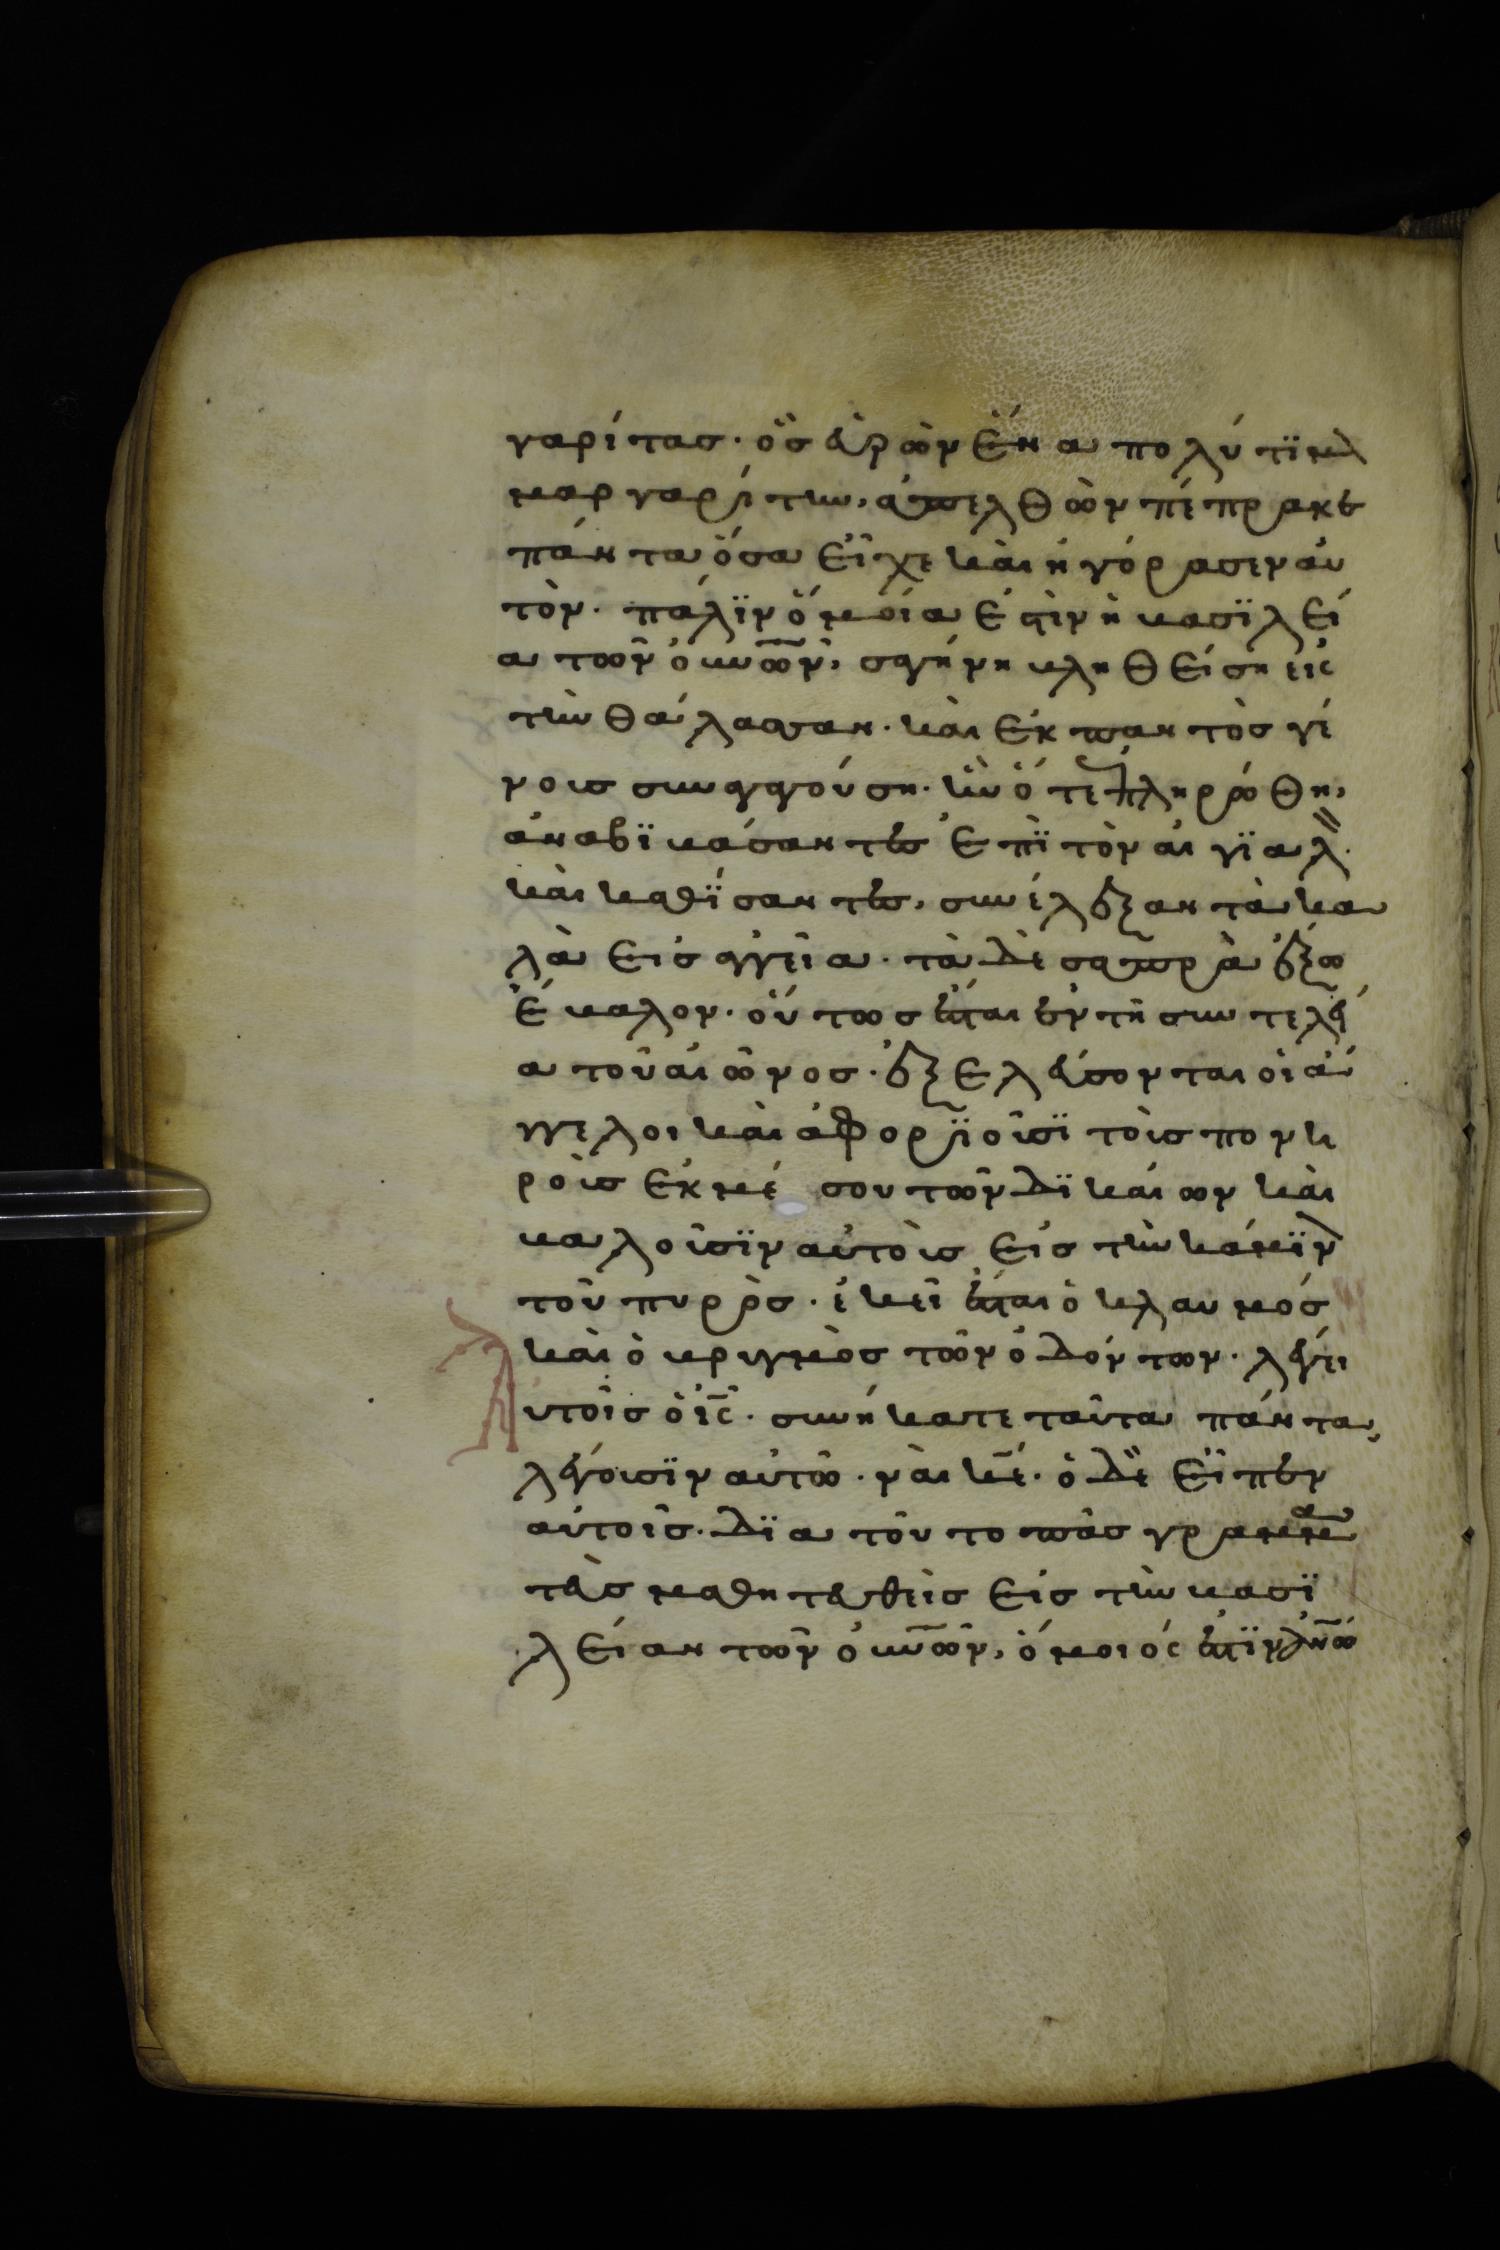 γαρίτασ· ὃσ ἑυρὼν ἕνα πολύτϊμ
μαργαρίτην, ἀπελθὼν πέπρακε
πάντα ὅσα εἶχε καὶ ἠγόρασεν ἀυ
τὸν· πάλϊν ὅμοία ἐστὶν ἡ βασϊλεί
α τῶν ὀυνῶν, σαγήνη βληθείση εἰς
τὴν θάλασσαν· καὶ ἐκ παντὸσ γέ
νουσ συναγαγούση· ἣν ὅτε ἐπληρώθη,
ἀναβϊβάσαντεσ ἐπὶ τὸν αἰγϊαλ
καὶ καθΐσαντεσ, συνέλεξαν τὰ κα
λὰ εἰσ ἀγγεῖα· τὰ δὲ σαπρὰ ἔξω
ἔβαλον· οὕτωσ ἔσται ἐν τῆ συντελεί
α τοῦ αἰῶνοσ· ἐξελεύσονται οἱ ἄ
γγελοι καὶ ἀφορϊοῦσϊ τοὺσ πονη
ροὺσ ἐκ μέσου τῶν δϊκαίων καὶ
βαλοῦσϊν αὐτοὺσ εἰσ τὴν κάμϊν
τοῦ πυρὸσ· ἐκεῖ ἔσται ὁ κλαυμόσ
καὶ ὁ βρυγμὸσ τῶν ὀδόντων· λέγει
ἀυτοῖσ ὁ ἰς· συνήκατε ταῦτα πάντα,
λέγουσϊν αὐτῶ· ναὶ κε· ὁ δὲ εἶπεν
αὐτοῖσ· δϊα τοῦτο πᾶσ γραμμα
τεὺσ μαθητευθεὶσ εἰσ τὴν βασϊ
λείαν τῶν ὀυνῶν, ὅμοιός ἐστϊν ἀνω